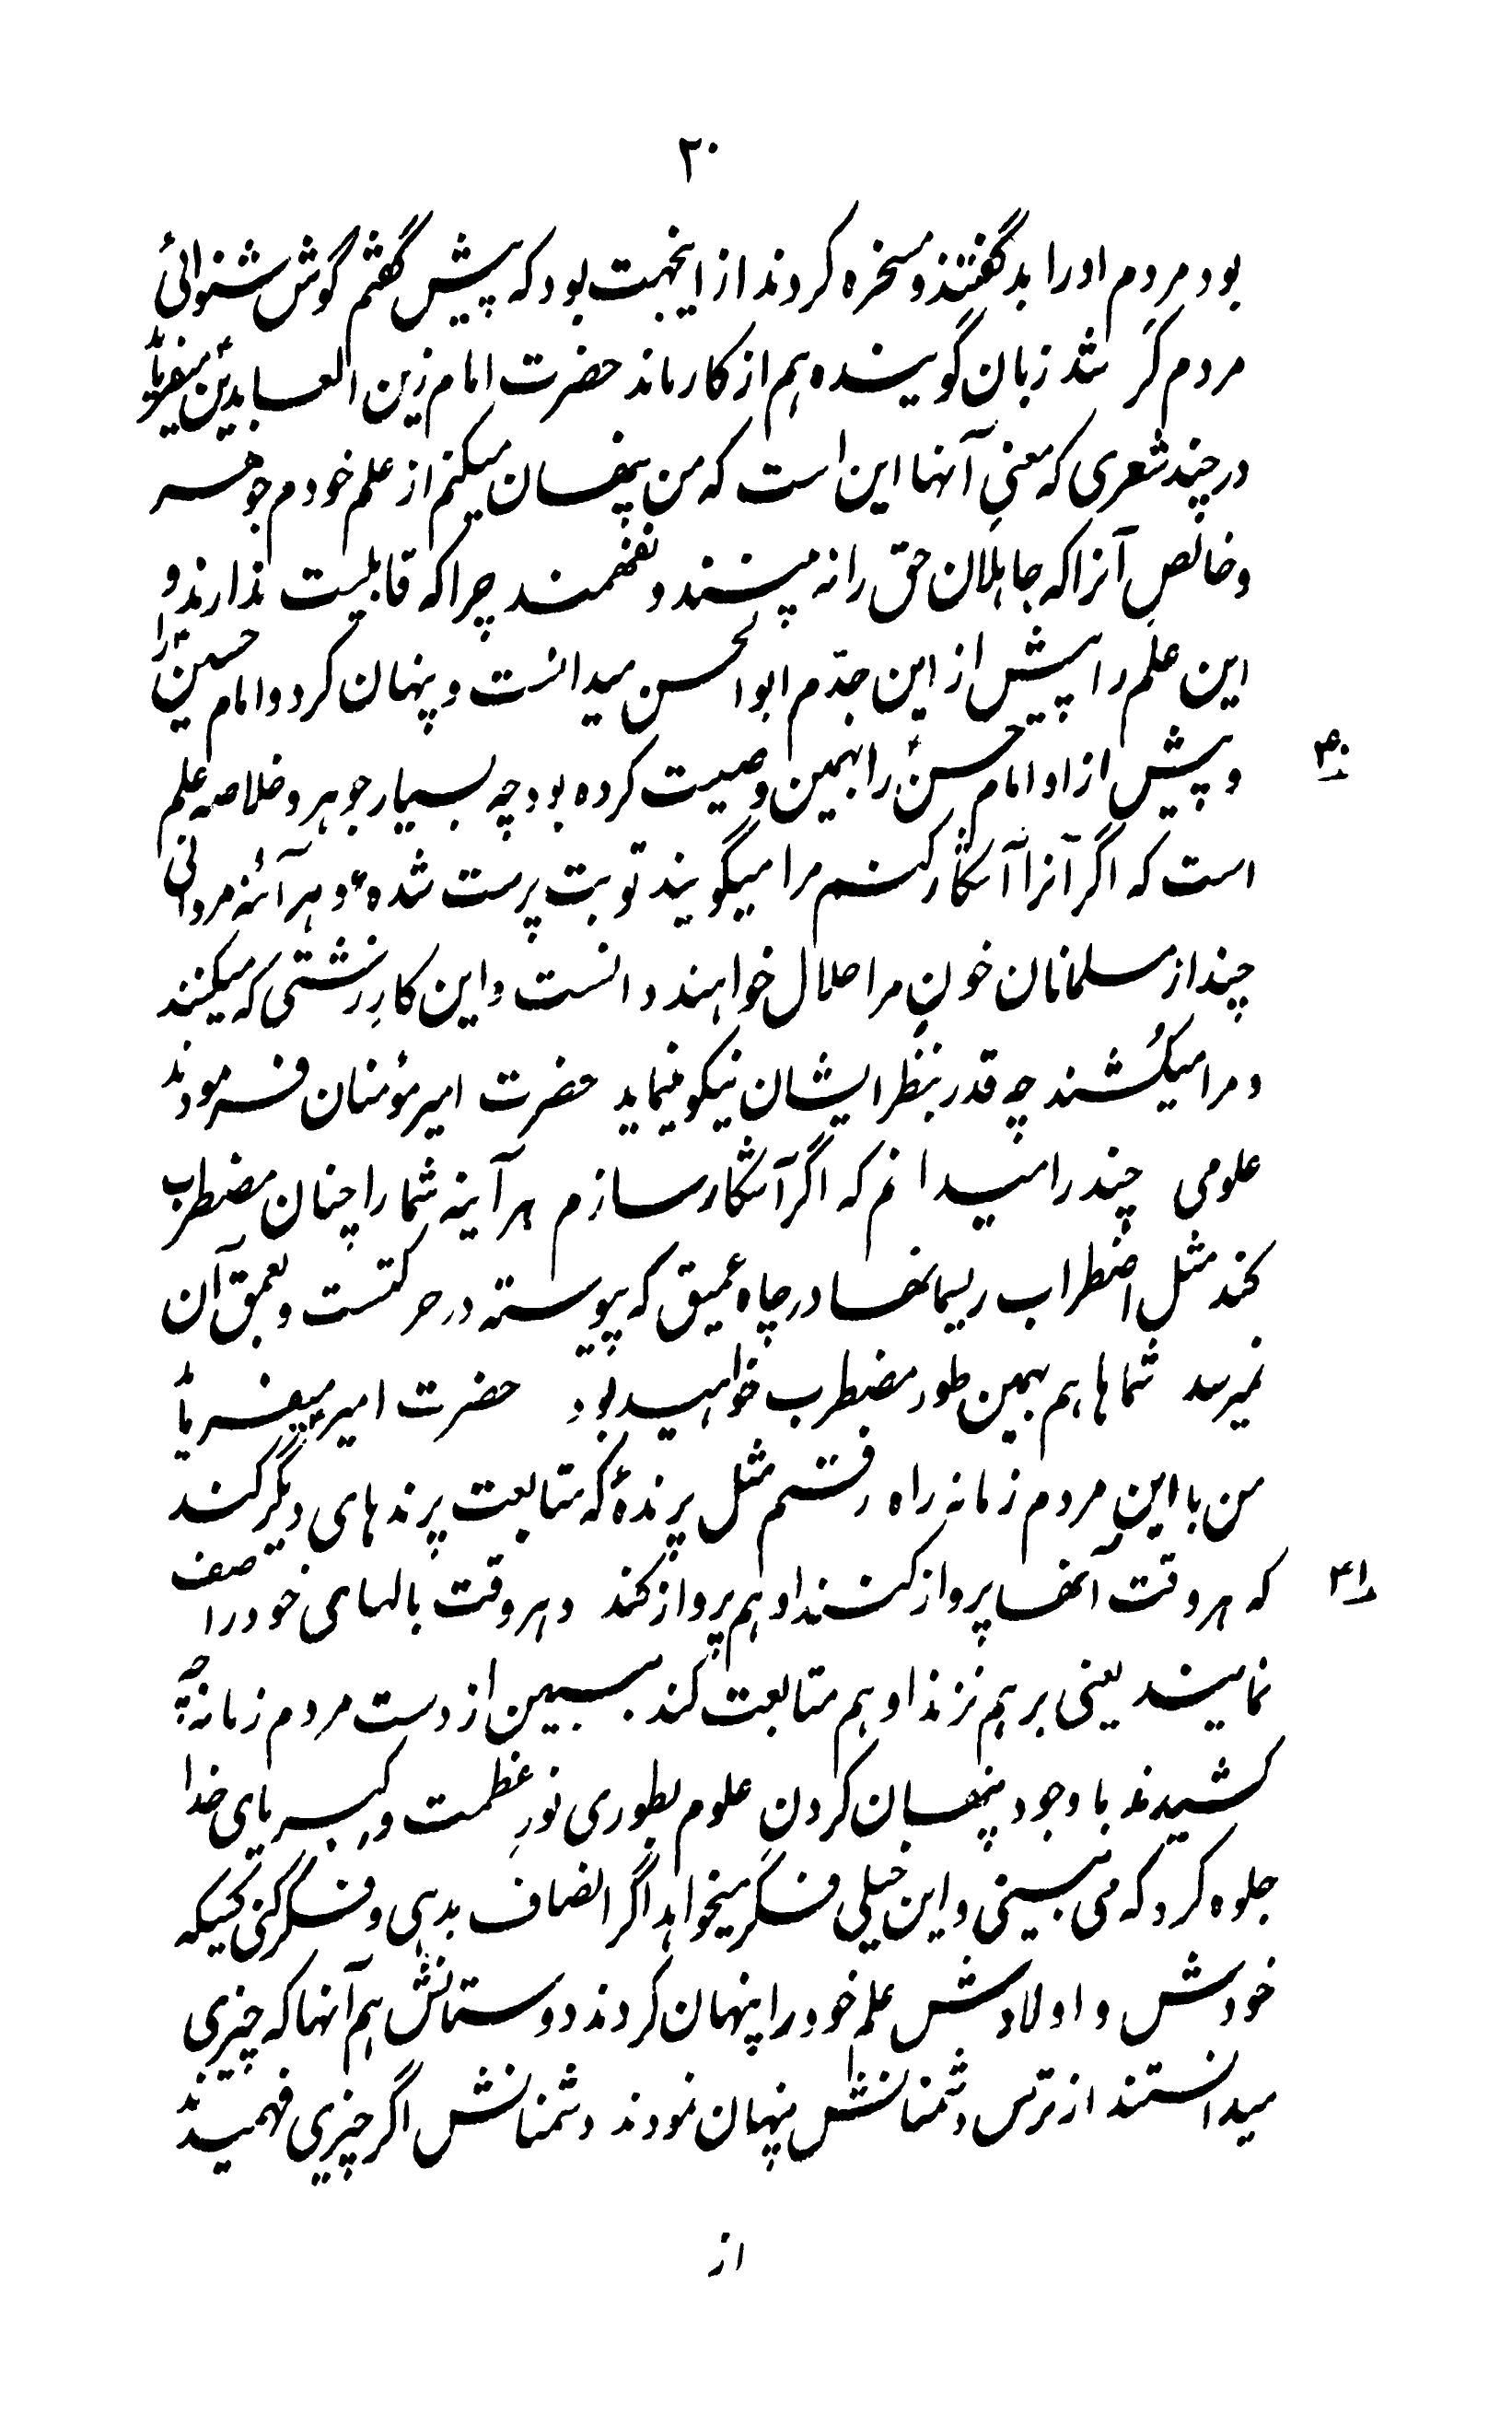 ۲۰
بود مردم او را بد گفتند و مسخره کردند از اینجهت بود که پیش گفتم گوش شنوائی
مردم کَر شد زبان گوینده هم از کار ماند حضرت امام زین العابدین ع میفرماید
در چند شعری که معنی آنها این است که من پنهان میکنم از علم خودم جوهر
و خالص آنرا که جاهلان حق را نه بینند و نفهمند چرا که قابلیت ندارند و
این علم را پیش از این جدّم ابو الحسن میدانست و پنهان کرد و امام حسین ع را
و پیش از او امام حسن ع را بهمین وصیت کرده بود چه بسیار جوهر و خلاصه علم
۴۰
است که اگر آنرا آشکار کنم مرا میگویند تو بت پرست شدهٔ و هر آئنه مردانی
چند از مسلمانان خون مرا حلال خواهند دانست و این کارِ زشتی که میکنند
و مرا میکُشند چه قدر بنظر ایشان نیکو مینماید حضرت امیر مؤمنان فرمودند
علومی چند را میدانم که اگر آشکار سازم هر آینه شما را چنان مضطرب
کند مثل اضطراب ریسمانها در چاه عمیق که پیوسته در حرکتست و بعمق آن
نمیرسد شماها هم بهمین طور مضطرب خواهید بود حضرت امیر ع میفرماید
من با این مردم زمانه راه رفتم مثل پرندهٔ که متابعت پرندهای دیگر کند
که هر وقت آنها پرواز کنند او هم پرواز کند و هر وقت بالهای خود را صف
۴۱
نمایند یعنی بر هم نزنند او هم متابعت کند ببین از دست مردم زمانه چه
کشیدند با وجود پنهان کردنِ علوم بطوری نورِ عظمت و کبریای خدا
جلوه کرد که می بینی و این خیلی فکر میخواهد اگر انصاف بدهی و فکر کنی کسیکه
خودش و اولادش علم خود را پنهان کردند دوستانش هم آنها که چیزی
میدانستند از ترس دشمنانش پنهان نمودند دشمنانش اگر چیزی فهمیدند
از